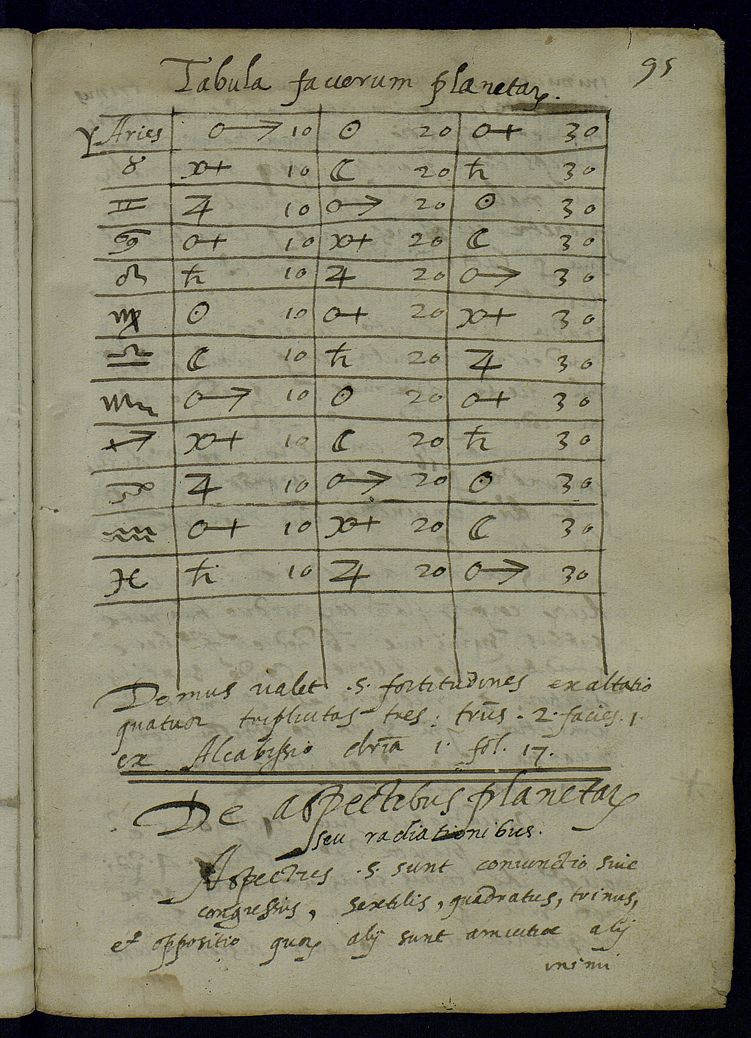 95
Tabula facierum planetaꝝ.
♈ Aries ♂ 10 ☉ 20 ♀ 30
♉ ☿ 10 ☾ 20 ♄ 30
♊ ♃ 10 ♂ 20 ☉ 30
♋ ♀ 10 ☿ 20 ☾ 30
♌ ♄ 10 ♃ 20 ♂ 30
♍ ☉ 10 ♀ 20 ☿ 30
♎ ☾ 10 ♄ 20 ♃ 30
♏ ♂ 10 ☉ 20 ♀ 30
♐ ☿ 10 ☾ 20 ♄ 30
♑ ♃ 10 ♂ 20 ☉ 30
♒ ♀ 10 ☿ 20 ☾ 30
♓ ♄ 10 ♃ 20 ♂ 30
Domus ualet .5. fortitudines exaltatio
quatuor triplicitas tres. 2. facies. 1.
ex Alcabissio 1. fol. 17.
De aspectibus planetaꝝ
seu radiationibus.
Aspectus .5. sunt coniunctio siue
congressus, sextilis, quadratus, trinus,
et oppositio quoꝝ alij sunt amicitiæ alij